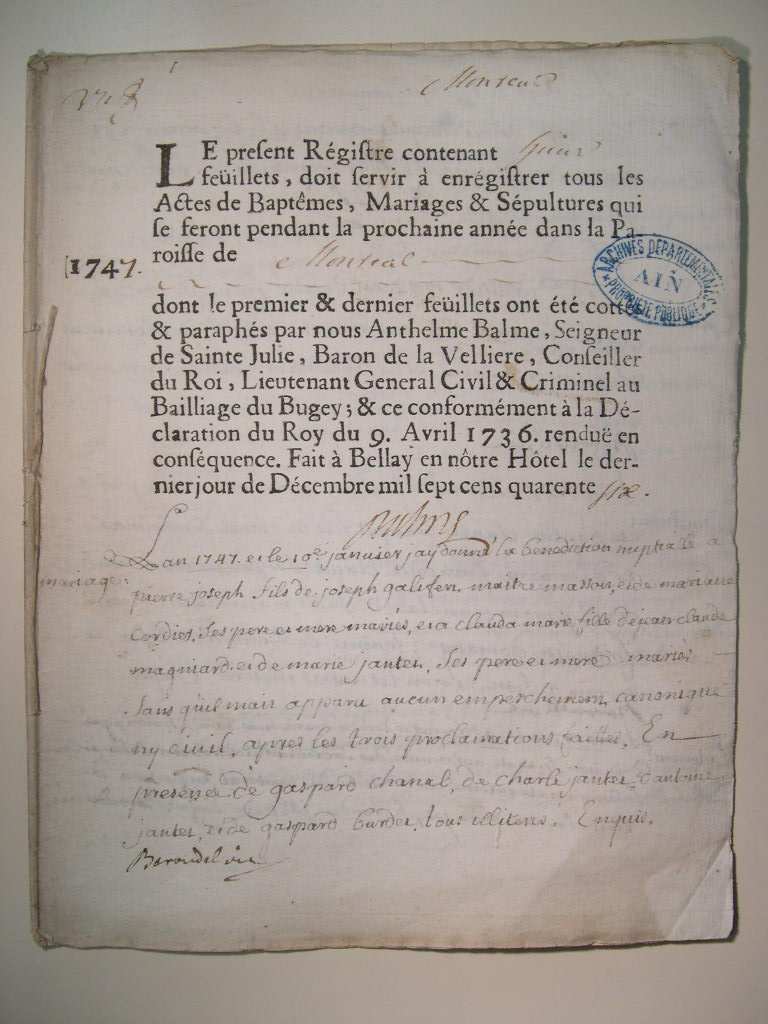 Montreal
LE present Régistre contenant
feüillets, doit servir à enrégistrer tous les
Actes de Baptêmes, Mariages & Sépultures qui
se feront pendant la prochaine année dans la Pa-
roisse de Montreal
1747.
ARCHIVES DÉPARTEMENTALES
AIN
PROPRIÉTÉ PUBLIQUE
dont le premier & dernier feüillets ont été cottés
& paraphés par nous Anthelme Balme, Seigneur
de Sainte Julie, Baron de la Velliere, Conseiller
du Roi, Lieutenant General Civil & Criminel au
Bailliage du Bugey; & ce conformément à la Dé-
claration du Roy du 9. Avril 1736. renduë en
conséquence. Fait à Bellay en nôtre Hôtel le der-
nier jour de Décembre mil sept cens quarente six.
Lan 1747. et le 10e janvier jay donné la benediction nuptialle a
mariage
pierre joseph fils de joseph galifer maitre masson, et de mariane
Cordier, ses pere et mere mariés, et a clauda marie fille de jean claude
magniard et de marie jantet, ses pere et mere mariés
sans quil mait apparu aucun empeschement canonique
ny civil, apres les trois proclamations faittes. En
presence de gaspard chanal, de charle jantet, d'antoine
jantet, et de gaspard burdet, tous illiteres. Enquis.